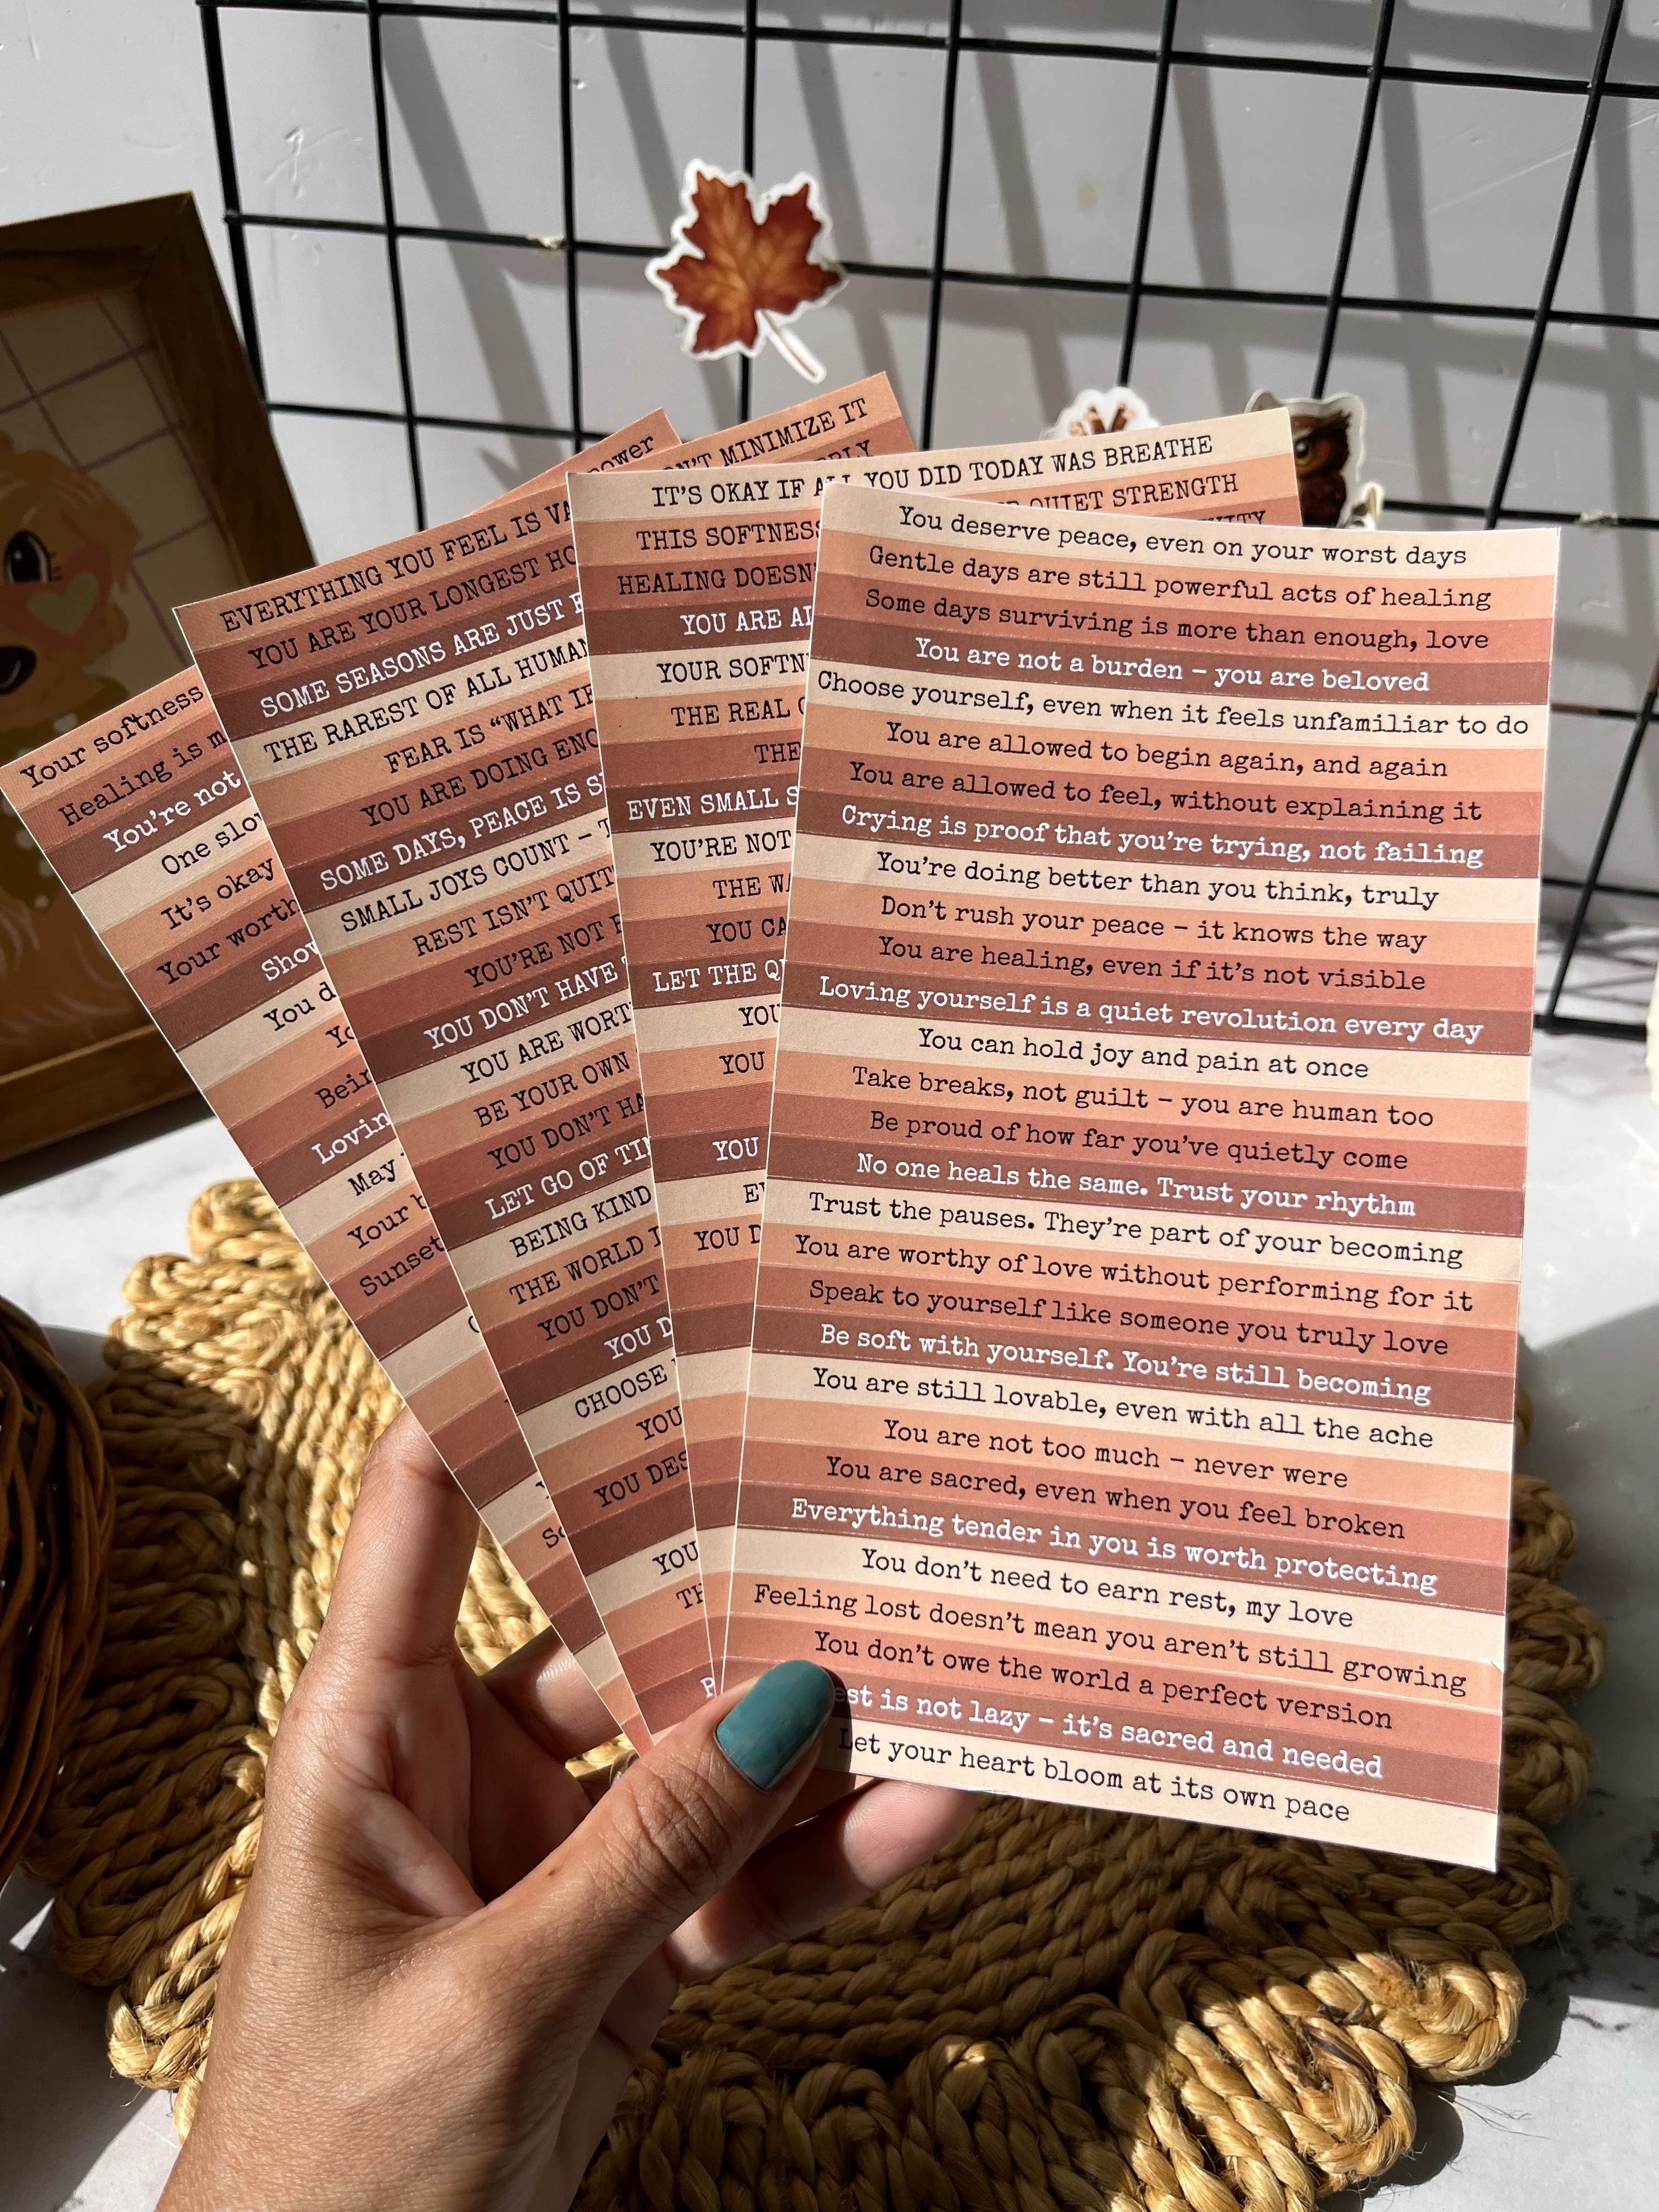 Your softness
Healing is m
You're not
One slo
It's okay
Your worth
Show
You d
Yo
Bein
Lovin
May
Your b
Sunset
power
EVERYTHING YOU FEEL IS VA
YOU ARE YOUR LONGEST HO
SOME SEASONS ARE JUST F
THE RAREST OF ALL HUMAN
FEAR IS “WHAT IF
YOU ARE DOING ENO
SOME DAYS, PEACE IS S
SMALL JOYS COUNT – T
REST ISN'T QUIT
YOU'RE NOT
YOU DON'T HAVE
YOU ARE WORT
BE YOUR OWN
YOU DON'T HA
LET GO OF TIM
BEING KIND
THE WORLD
YOU DON'T
YOU D
CHOOSE
YOU
YOU DES
YOU
TH
N'T MINIMIZE IT
IT'S OKAY IF ALL YOU DID TODAY WAS BREATHE
THIS SOFTNESS
QUIET STRENGTH
HEALING DOESN'
YOU ARE AL
YOUR SOFTN
THE REAL
THE
EVEN SMALL S
YOU'RE NOT
THE WA
YOU CA
LET THE QU
YOU
YOU
YOU
EV
YOU D
You deserve peace, even on your worst days
Gentle days are still powerful acts of healing
Some days surviving is more than enough, love
You are not a burden – you are beloved
Choose yourself, even when it feels unfamiliar to do
You are allowed to begin again, and again
You are allowed to feel, without explaining it
Crying is proof that you're trying, not failing
You're doing better than you think, truly
Don't rush your peace – it knows the way
You are healing, even if it's not visible
Loving yourself is a quiet revolution every day
You can hold joy and pain at once
Take breaks, not guilt – you are human too
Be proud of how far you've quietly come
No one heals the same. Trust your rhythm
Trust the pauses. They're part of your becoming
You are worthy of love without performing for it
Speak to yourself like someone you truly love
Be soft with yourself. You're still becoming
You are still lovable, even with all the ache
You are not too much – never were
You are sacred, even when you feel broken
Everything tender in you is worth protecting
You don't need to earn rest, my love
Feeling lost doesn't mean you aren't still growing
You don't owe the world a perfect version
est is not lazy – it's sacred and needed
Let your heart bloom at its own pace